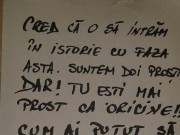 CRED CĂ O SĂ INTRĂM
ÎN ISTORIE CU FAZA
ASTA. SUNTEM DOI PROȘTI
DAR! TU EȘTI MAI
PROST CA ORICINE!!
CUM AI PUTUT SĂ